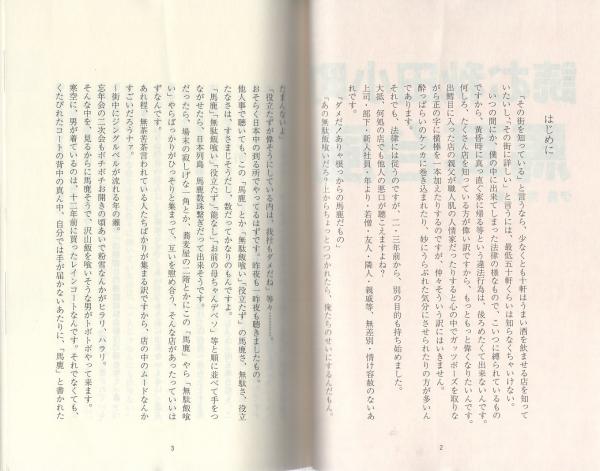 はじめに
「その街を知っている」と言うなら、少なくとも十軒はうまい酒を飲ませる店を知って
いたいし、「その街に詳しい」と言うには、最低五十軒くらいは知らなくちゃいけない。
いつの間にか、僕の中に出来てしまった法律の様なもので、こいつに縛られているもの
ですから、黄昏時に真っ直ぐ家に帰る等という違法行為は、後ろめたくて出来ないんです。
何しろ、たくさん店を知っている方が偉い訳ですから、もっともっと偉くなりたいんです。
出鱈目に入った店の親父が職人肌の人情家だったりすると心の中でガッツポーズを取りな
がら正の字に横棒を一本加えたりするのですが、仲々そういう訳にはいきません。
酔っぱらいのケンカに巻き込まれたり、妙にうらぶれた気分にさせられたりの方が多いん
それでも、法律には従うのですが、二、三年前から、別の目的も持ち始めました。
大抵、何処の店でも他人の悪口が聴こえますよね?
上司・部下・新人社員・年より・若僧・友人・隣人・親戚等、無差別・情け容赦のないあ
れです。
「ダメだ!ありゃ根っからの馬鹿だもの」
「あの無駄飯喰いだろ?上からちょっとつっつかれたら、俺たちのせいにするんだもん。
2
たまんないよ」
「役立たずが偉そうにしている内は、我社もダメだね」等々………。
おそらく日本中の到る所でやってるはずです。昨夜も一昨夜も聴きましたもの。
他人事で聴いても、この「馬鹿」とか「無駄飯喰い」「役立たず」の馬鹿さ、無駄さ、役立
たなさは、すさまじそうだし、数だってかなりのもんですよ。
「馬鹿」「無駄飯喰い」「役立たず」「能なし」「お前の母ちゃんデベソ」等と順に並べて手をつ
ながせたら、日本列島、馬鹿数珠繋ぎだって出来そうです。
だったら、場末の寂しげな一角とか、蕎麦屋の二階とかにこの「馬鹿」やら「無駄飯喰
い」やらばっかりがひっそりと集まって、互いを慰め合う、そんな店があったっていいは
ずなんです。
あれ程、無茶苦茶言われている人たちばかりが集まる訳ですから、店の中のムードなんか
すごいだろうナァ。
―街中にジングルベルが流れる年の瀬。
忘年会の二次会もボチボチお開きの頃あいで粉雪なんかがヒラリ、ハラリ。
そんな中を、見るからに馬鹿そうで、沢山飯を喰いそうな男がトボトボやって来ます。
寒空に、男が着ているのは、十二年前に買ったレインコートなんです。それでなくても、
くたびれたコートの背中の真ん中、自分では手が届かないあたりに、「馬鹿」と書かれた
3